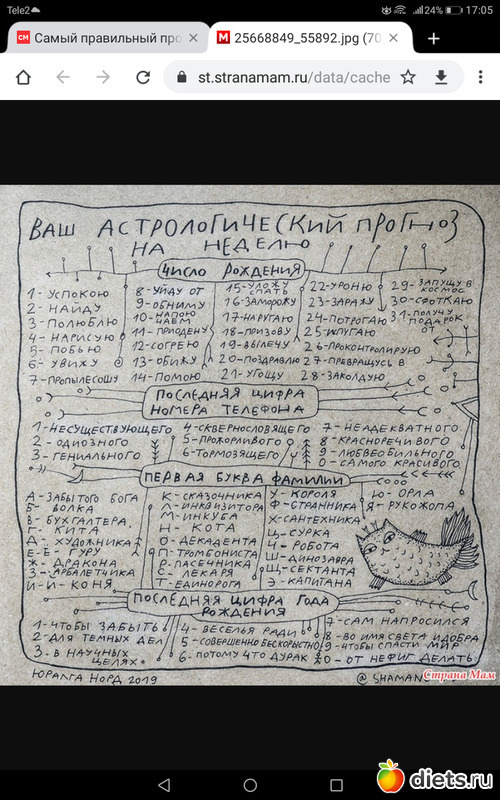 Tele2
24% 17:05
Самый правильный про
25668849_55892.jpg (70
st.stranamam.ru/data/cache
ВАШ АСТРОЛОГИЧЕСКИЙ ПРОГНОЗ
НА НЕДЕЛЮ
ЧИСЛО РОЖДЕНИЯ
1- УСПОКОЮ
2- НАЙДУ
3- ПОЛЮБЛЮ
4- НАРИСУЮ
5- ПОБЬЮ
6- УВИЖУ
7- ПРОПЫЛЕСОШУ
8- УЙДУ ОТ
9- ОБНИМУ
10- НАПОЮ ЧАЕМ
11- ПРИОДЕНУ
12- СОГРЕЮ
13- ОБИЖУ
14- ПОМОЮ
15- УЛОЖУ СПАТЬ
16- ЗАМОРОЖУ
17- НАРУГАЮ
18- ПРИЗОВУ
19- ВЫЛЕЧУ
20- ПОЗДРАВЛЮ
21- УГОЩУ
22- УРОНЮ
23- ЗАРАЖУ
24- ПОТРОГАЮ
25- ИСПУГАЮ
26- ПРОКОНТРОЛИРУЮ
27- ПРЕВРАЩУСЬ В
28- ЗАКОЛДУЮ
29- ЗАПУЩУ В КОСМОС
30- СФОТКАЮ
31- ПОЛУЧУ ПОДАРОК ОТ
ПОСЛЕДНЯЯ ЦИФРА
НОМЕРА ТЕЛЕФОНА
1- НЕСУЩЕСТВУЮЩЕГО
2- ОДИОЗНОГО
3- ГЕНИАЛЬНОГО
4- СКВЕРНОСЛОВЯЩЕГО
5- ПРОЖОРЛИВОГО
6- ТОРМОЗЯЩЕГО
7- НЕАДЕКВАТНОГО
8- КРАСНОРЕЧИВОГО
9- ЛЮБВЕОБИЛЬНОГО
0- САМОГО КРАСИВОГО
ПЕРВАЯ БУКВА ФАМИЛИИ
А- ЗАБЫТОГО БОГА
Б- ВОЛКА
В- БУХГАЛТЕРА
Г- КИТА
Д- ХУДОЖНИКА
Е-Ё- ГУРУ
Ж- ДРАКОНА
З- АРБАЛЕТЧИКА
И-Й- КОНЯ
К- СКАЗОЧНИКА
Л- ИНКВИЗИТОРА
М- ИНКУБА
Н- КОТА
О- ДЕКАДЕНТА
П- ТРОМБОНИСТА
Р- ПАСЕЧНИКА
С- ЛЕКАРЯ
Т- ЕДИНОРОГА
У- КОРОЛЯ
Ф- СТРАННИКА
Х- САНТЕХНИКА
Ц- СУРКА
Ч- РОБОТА
Ш- ДИНОЗАВРА
Щ- СЕКТАНТА
Э- КАПИТАНА
Ю- ОРЛА
Я- РУКОЖОПА
ПОСЛЕДНЯЯ ЦИФРА ГОДА
РОЖДЕНИЯ
1- ЧТОБЫ ЗАБЫТЬ
2- ДЛЯ ТЕМНЫХ ДЕЛ
3- В НАУЧНЫХ ЦЕЛЯХ
4- ВЕСЕЛЬЯ РАДИ
5- СОВЕРШЕННО БЕСКОРЫСТНО
6- ПОТОМУ ЧТО ДУРАК
7- САМ НАПРОСИЛСЯ
8- ВО ИМЯ СВЕТА И ДОБРА
9- ЧТОБЫ СПАСТИ МИР
0- ОТ НЕФИГ ДЕЛАТЬ
ЮРАТГА НОРД 2019
@ SHAMAN
Страна Мам
diets.ru